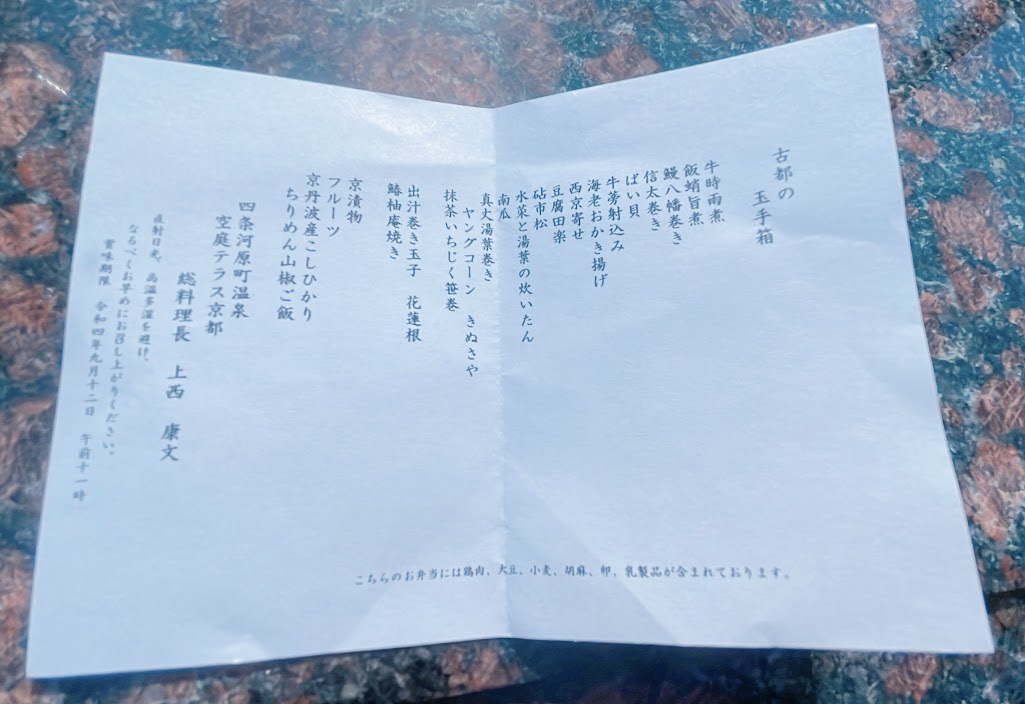 古都の
玉手箱
牛時雨煮
飯蛸旨煮
鰻八幡巻き
信太巻き
ばい貝
牛蒡射込み
海老おかき揚げ
西京寄せ
豆腐田楽
砧市松
水菜と湯葉の炊いたん
南瓜
真丈湯葉巻き
ヤングコーン きぬさや
抹茶いちじく笹巻
出汁巻き玉子 花蓮根
鰆柚庵焼き
京漬物
フルーツ
京丹波産こしひかり
ちりめん山椒ご飯
四条河原町温泉
空庭テラス京都
総料理長 上西 康文
直射日光、高温多湿を避け、
なるべくお早めにお召し上がりください。
賞味期限 令和四年九月十二日 午前十一時
こちらのお弁当には鶏肉、大豆、小麦、胡麻、卵、乳製品が含まれております。